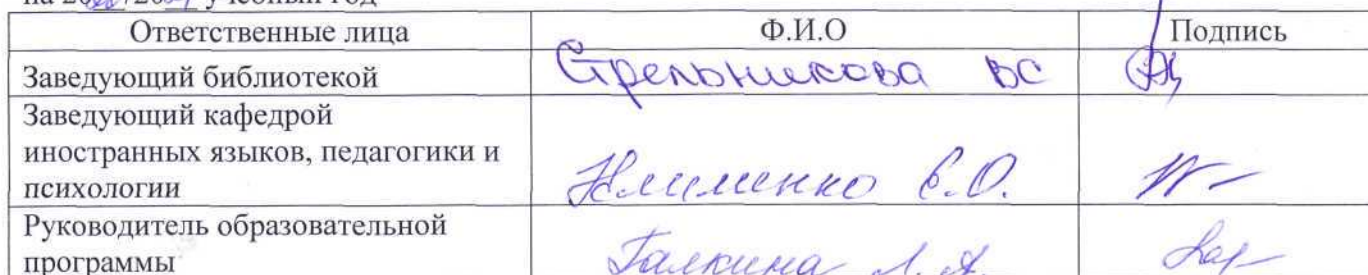 учебный год
Ответственные лица Ф.И.О Подпись
Заведующий библиотекой Стрельникова ВС
Заведующий кафедрой
иностранных языков, педагогики и
психологии Е.О.
Руководитель образовательной
программы Галкина Л.А.